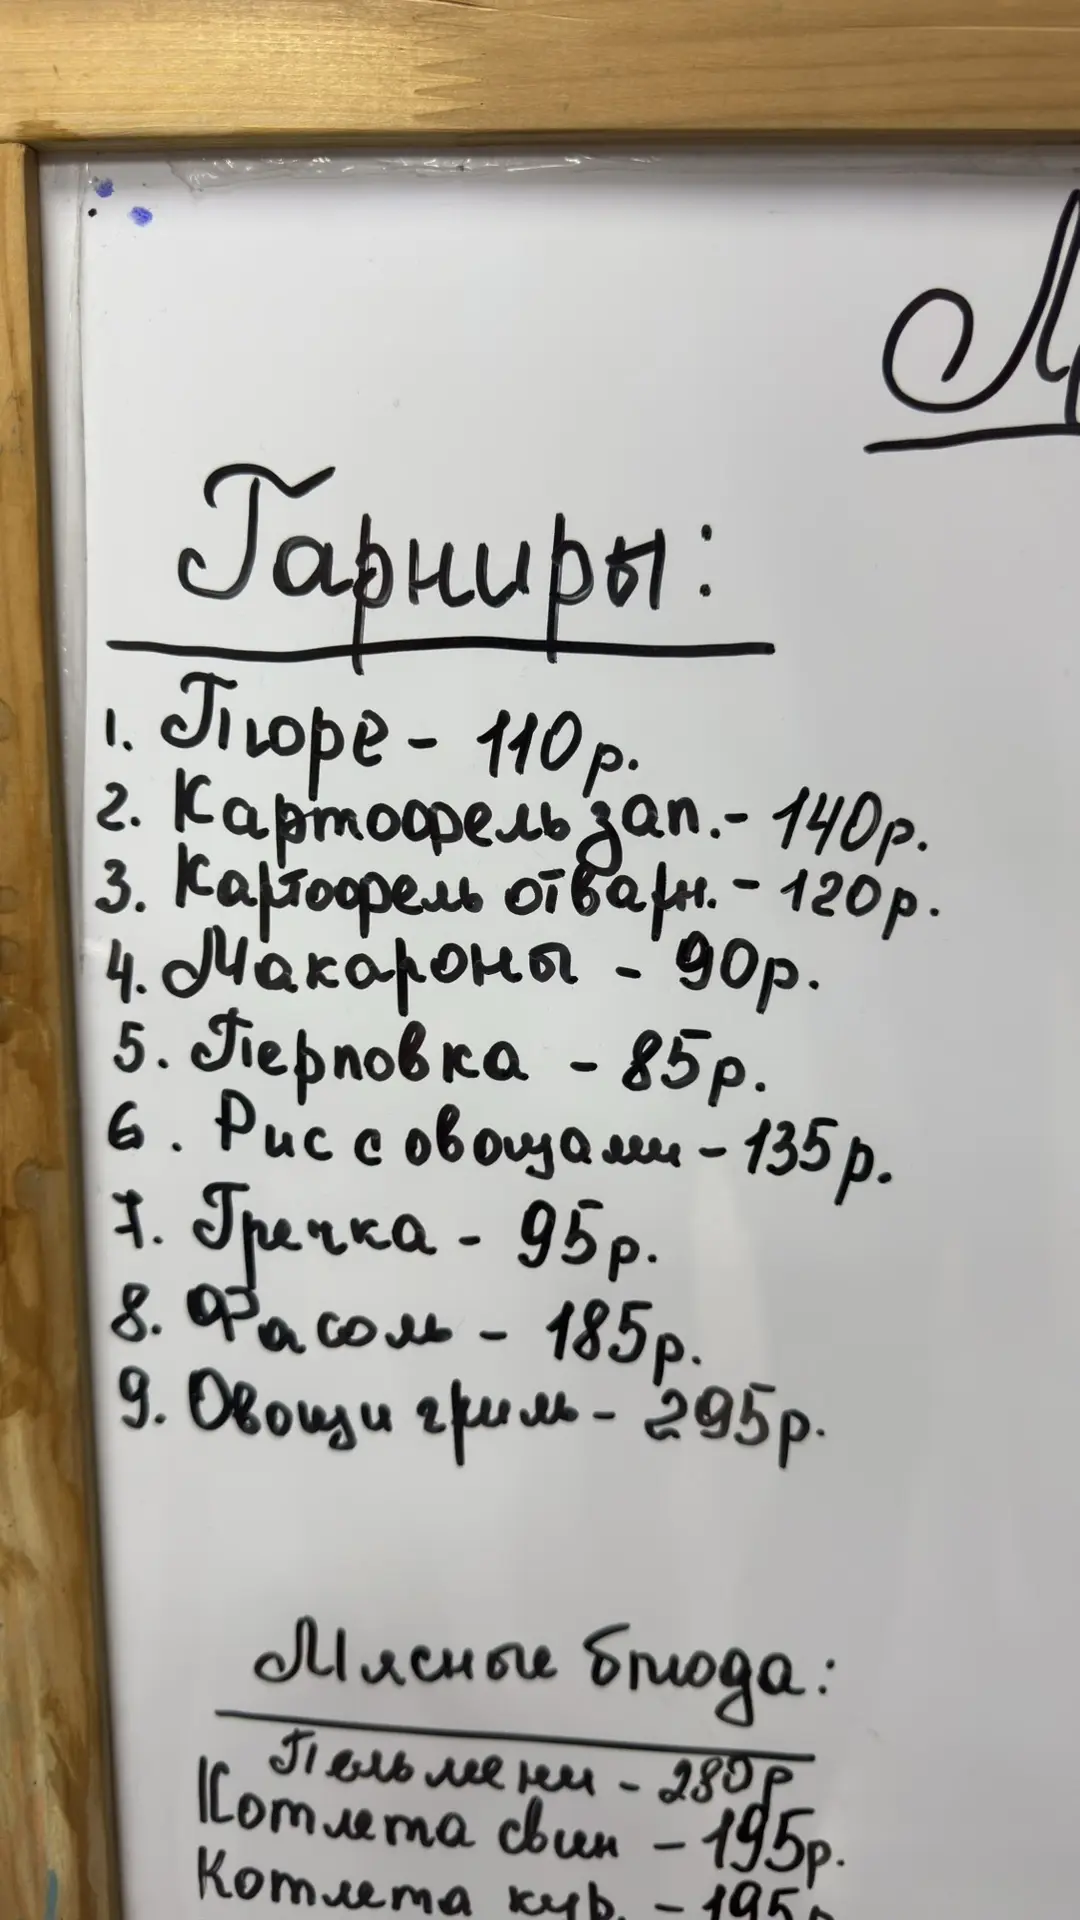 Гарниры:
1. Пюре - 110р.
2. Картофель зап. - 140р.
3. Картофель отварн. - 120р.
4. Макароны - 90р.
5. Перловка - 85р.
6. Рис с овощами - 135р.
7. Гречка - 95р.
8. Фасоль - 185р.
9. Овощи гриль - 295р.
Мясные блюда:
Пельмени - 280р
Котлета свин - 195р.
Котлета кур. - 195р